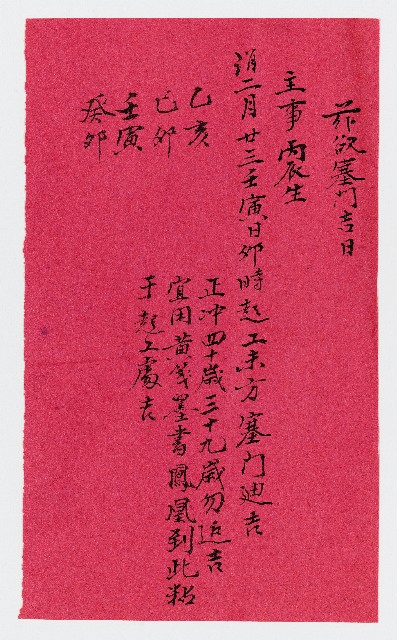 茲欲塞门吉日
主事丙辰生
涓二月廿三壬寅日卯時起工未方塞门迪吉
乙亥
己卯
壬寅
癸卯
正冲四十歲三十九歲勿近吉
宜用黃箋墨書鳳凰到此粘
于起工處吉